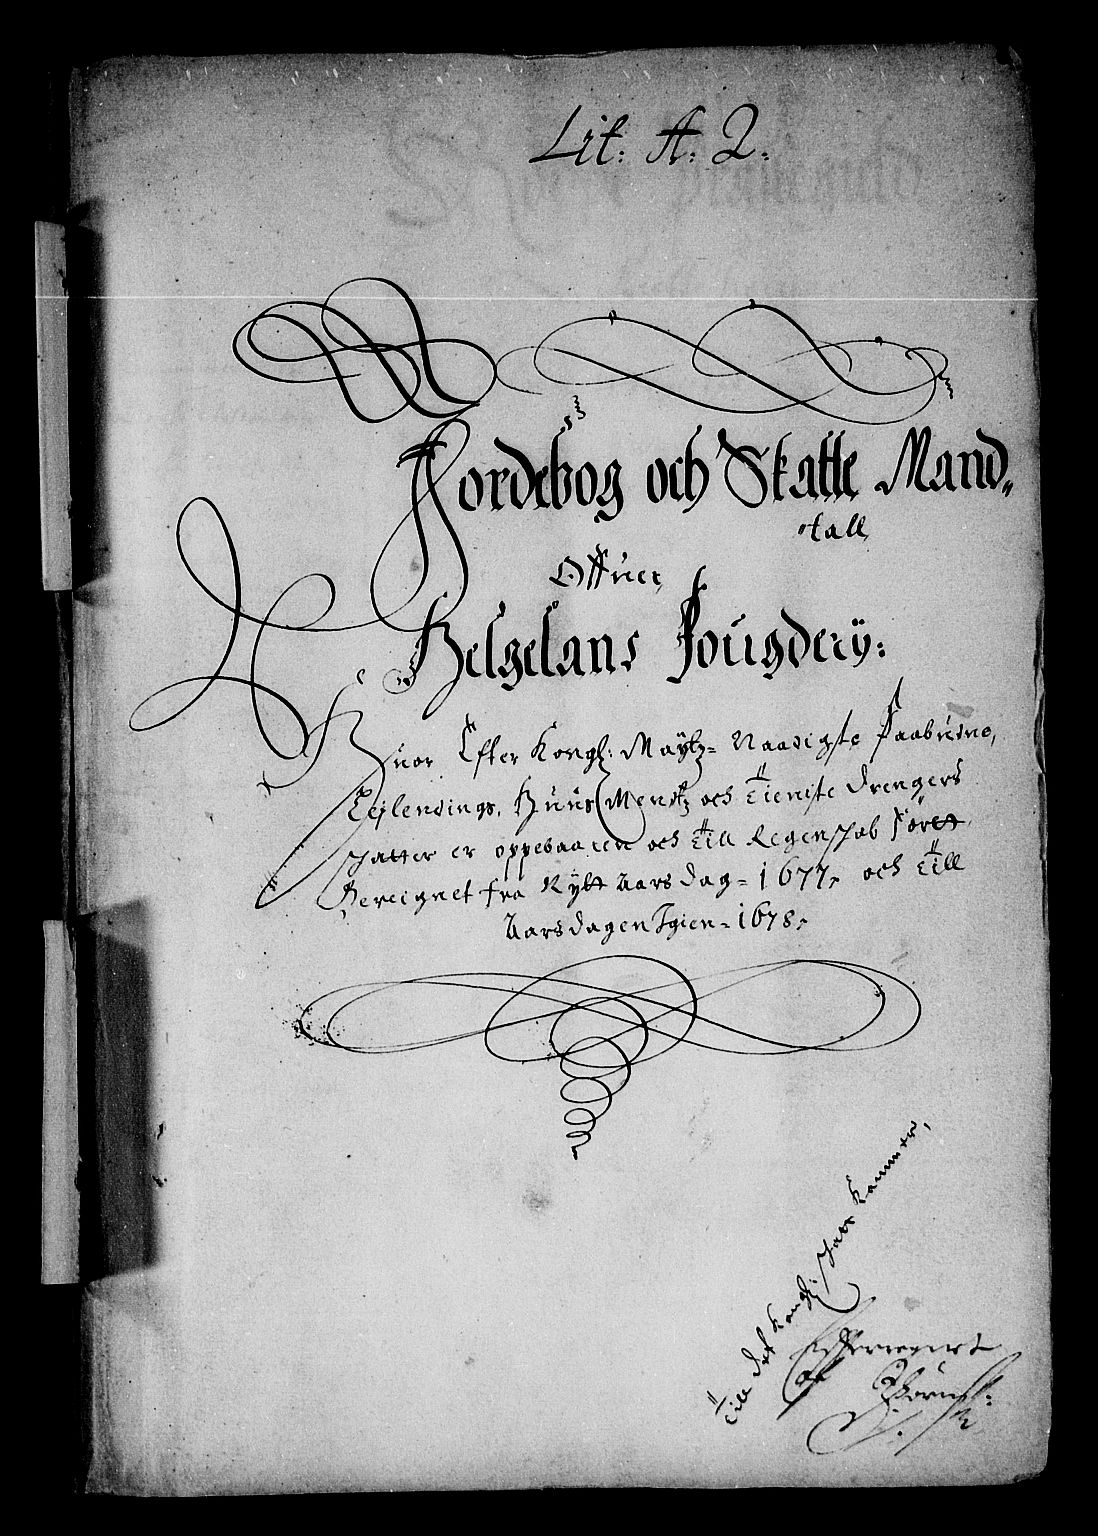 Lit: A: 2.
Jordebog och Skatte Mand„
„tall,
Offuer,
Helgelans Fougdery:
Huor Efter Kongl: Maÿtz= Naadigste Paabudne,
Leilendings, Huus Mendz och Tieniste drengers
schatter er oppebaaren och Till Regenschab førtt
Bereignet fra Nÿtt Aars dag= 1677, och Till
Aarsdagen Igien= 1678,
Till det Kongl: schatt Kammer,